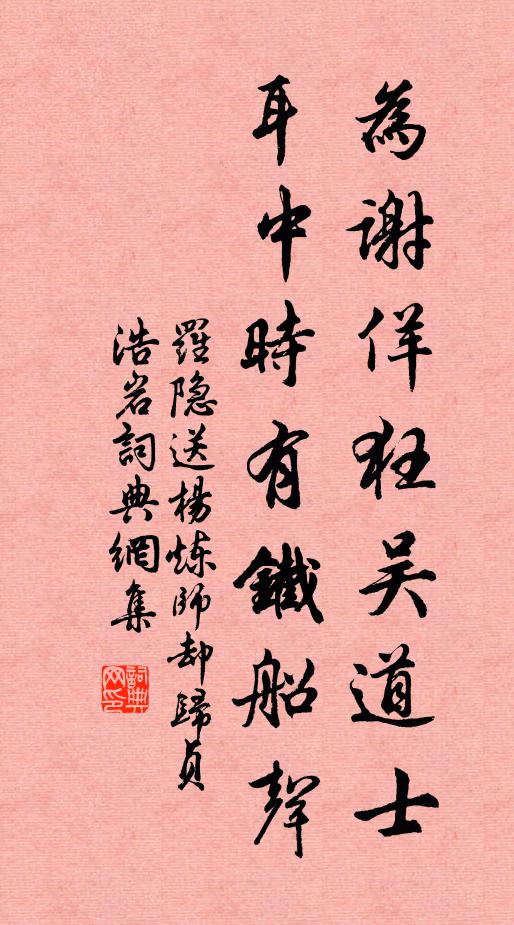 為謝佯狂吳道士
耳中時有鐵船聲
羅隐送楊炼师却歸貞
浩岩詞典網集
詞典網印